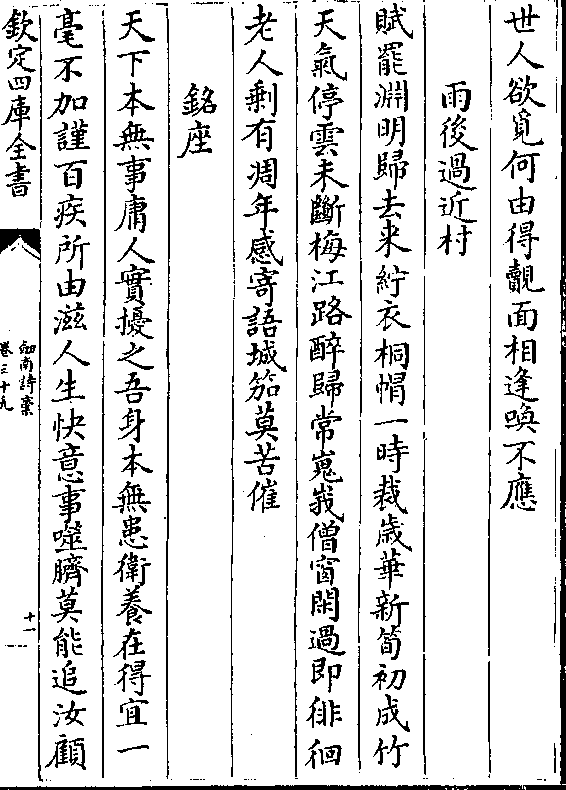 世人欲覓何由得覿面相逢喚不應
雨後過近村
賦罷淵明歸去来紵衣桐帽一時裁歲華新筍初成竹
天氣停雲未斷梅江路醉歸常嵬峩僧窗閑過即徘徊
老人剩有凋年感寄語城笳莫苦催
銘座
天下本無事庸人實擾之吾身本無患衛養在得宜一
毫不加謹百疾所由滋人生快意事噬臍莫能追汝顧
欽定四庫全書
劍南詩稾
卷三十九
十一